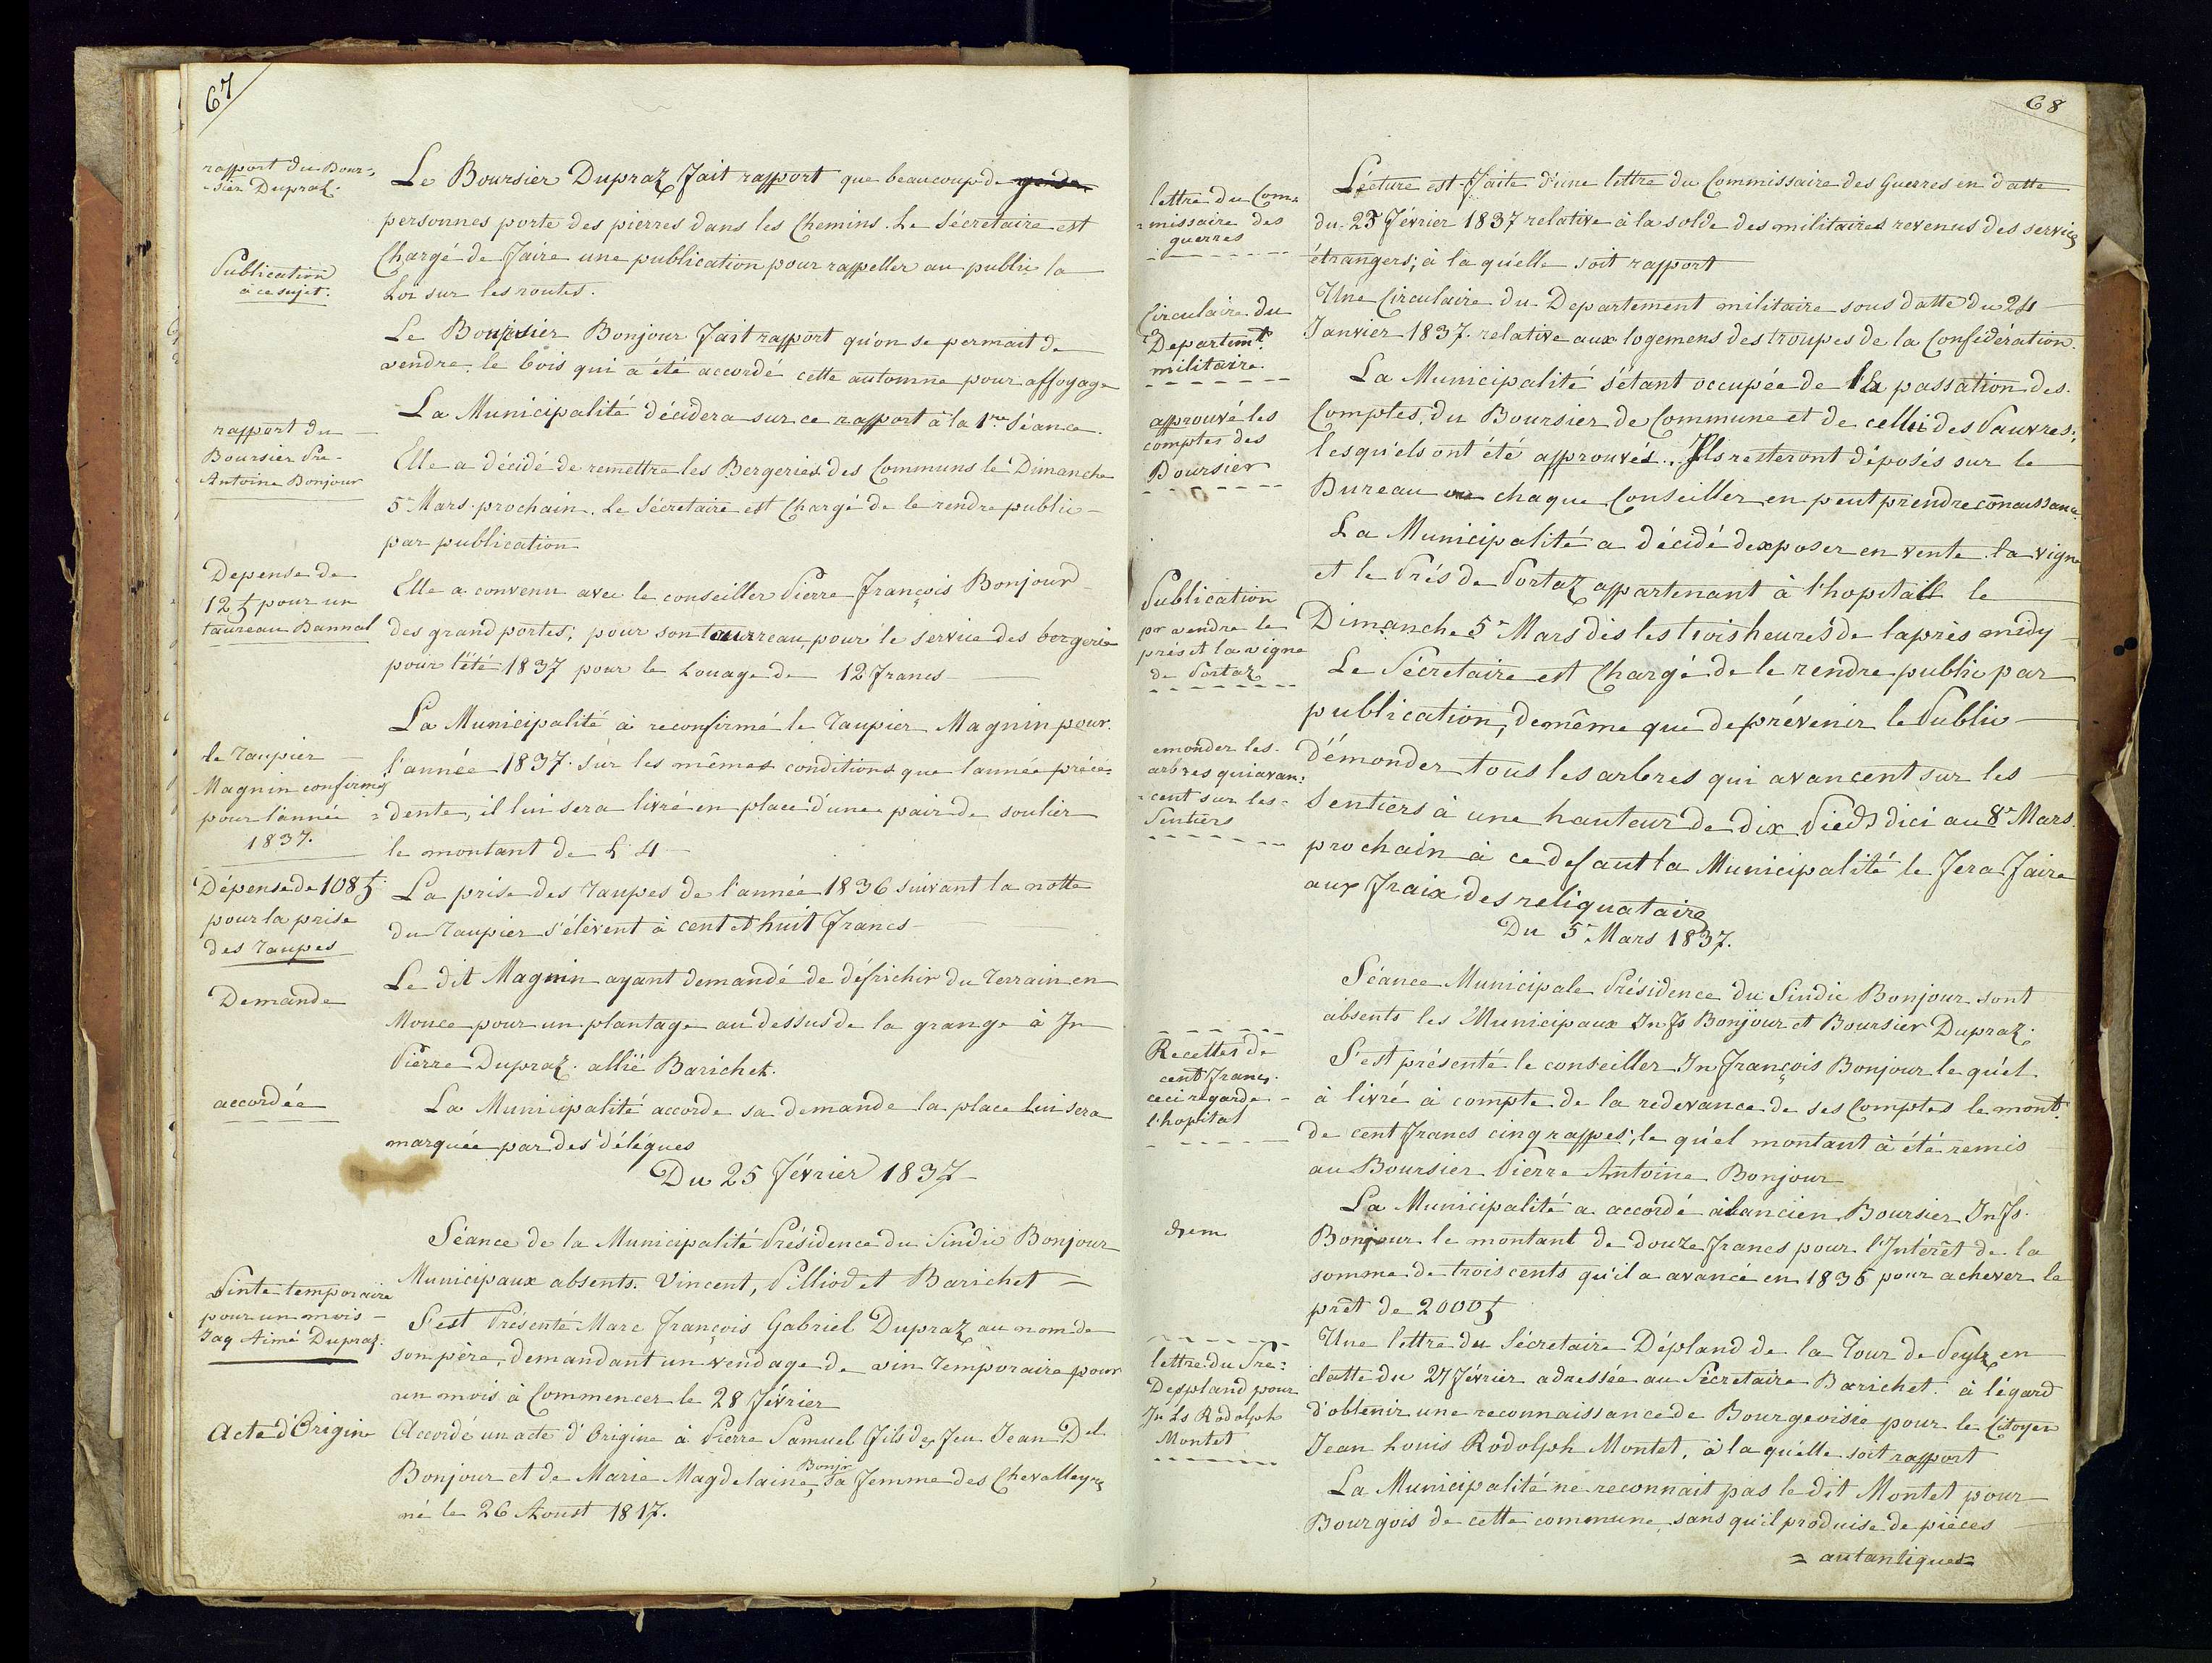 67
rapport du Bour=
=sier Dupraz.
Le Boursier Dupraz fait rapport que beaucoup de
personnes porte des pierres dans les Chemins. Le Sécretaire est
Chargé de faire une publication pour rappeller au public la
Loi sur les routes.
Publication
à ce sujet.
Le Boursier Bonjour fait rapport qu'on se permait de
vendre le bois qui a été accordé cette automne pour affoyage
La Municipalité décidera sur ce rapport à la 1re Séance.
rapport du
Boursier Pre
Antoine Bonjour
Elle a décidé de remettre les Bergeries des Communs le Dimanche
5e Mars prochain. Le Sécretaire est Chargé de le rendre public
par publication
Depense de
12 ₶ pour un
taureau Bannal
Elle a convenu avec le conseiller Pierre François Bonjour
des grand portes; pour son taurreau, pour le service des borgerie
pour l'été 1837 pour le Louage de 12 francs
La Municipalité à reconfirmé le Taupier Magnin pour
l'année 1837. sur les mêmes conditions que l'année précé=
=dente, il lui sera livré en place d'une pair de soulier
le montant de ₶ 4
le Taupier
Magnin confirmé
pour l'année
1837.
Dépense de 108 ₶
pour la prise
des Taupes
La prise des Taupes de l'année 1836 suivant la notte
du Taupier s'élèvent à cent et huit francs
Demande
Le dit Magnin ayant demandé de défrichir du Terrain en
Mouce pour un plantage au dessus de la grange à Jn
Pierre Dupraz. allié Barichet.
accordée
La Municipalité accorde sa demande la place Lui sera
marquée par des délégues
Du 25 février 1837
Séance de la Municipalité Présidence du Sindic Bonjour
Municipaux absents. Vincent, Pilliod et Barichet
Pinte temporaire
pour un mois
Jaq Aimé Dupraz.
S'est Présenté Marc François Gabriel Dupraz au nom de
son père, demandant un vendage de vin Temporaire pour
un mois à Commencer le 28 février
Acte d'Origine
Accordé un acte d'Origine à Pierre Samuel fils de feu Jean Del
Bonjour et de Marie Magdelaine, Bonjr sa femme des Chevalleyres
né le 26 Aoust 1817.
68
lettre du Com=
=missaire des
guerres
Lécture est faite d'une lettre du Commissaire des Guerres en datte
du 23 février 1837 relative à la solde des militaires revenus des services
étrangers; à la qu'elle soit rapport
Circulaire du
Departemt
militaire
Une Circulaire du Departement militaire sous datte du 24
Janvier 1837. relative aux logemens des troupes de la Confidération.
La Municipalité s'étant occupée de la passation des
Comptes, du Boursier de Commune et de cellui des Pauvres;
lesqu'els ont été approuvés. Ils resteront déposés sur le
Bureau ou chaque Conseiller en peut prendre connaissance.
approuvé les
comptes des
Boursier
La Municipalité a décidé dexposer en vente la vigne
et le Prés de Portaz appartenant à l'hopital le
Dimanche 5e Mars dès les trois heures de laprès midy
Publication
pr vendre le
prés et la vigne
de Portaz
Le Sécretaire est Chargé de le rendre public par
publication, de même que de prévenir le Public
d'émonder tous les arbres qui avancent sur les
Sentiers à une hauteur de dix Pieds dici au 8e Mars
prochain à ce defaut la Municipalité le fera faire
aux fraix des reliquataires
emonder les
arbres qui avan=
=cent sur les
Sentiers
Du 5e Mars 1837.
Séance Municipale Présidence du Sindic Bonjour sont
absents les Municipaux Jn Fs Bonjour et Boursier Dupraz.
Recettes de
cent francs.
ceci regarde
l'hopital
S'est présenté le conseiller Jn François Bonjour le qu'el
à livré à compte de la redevance de ses Comptes le mont.
de cent francs cinq rappes; le qu'el montant à été remis
au Boursier Pierre Antoine Bonjour
idem
La Municipalité a accordé à lancien Boursier Jn Fs.
Bonjour le montant de douze francs pour l'Intérêt de la
somme de trois cents qu'il a avancé en 1835 pour achever le
prêt de 2000 ₶
lettre du Sre=
Despland pour
Jn Ls Rodolph
Montet
Une lettre du Sécretaire Dépland de la Tour de Peylz en
datte du 27 février adressée au Sécretaire Barichet. à l'égard
d'obtenir une reconnaissance de Bourgeoisie pour le Citoyen
Jean Louis Rodolph Montet, à la qu'elle soit rapport
La Municipalité ne reconnait pas le dit Montet pour
Bourgois de cette commune, sans qu'il produise de pièces
= autantiques=